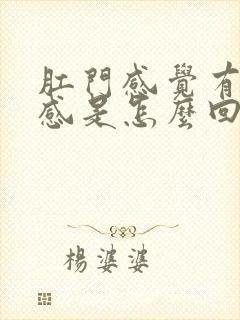 肛門感覺有
感是怎麼回
楊婆婆